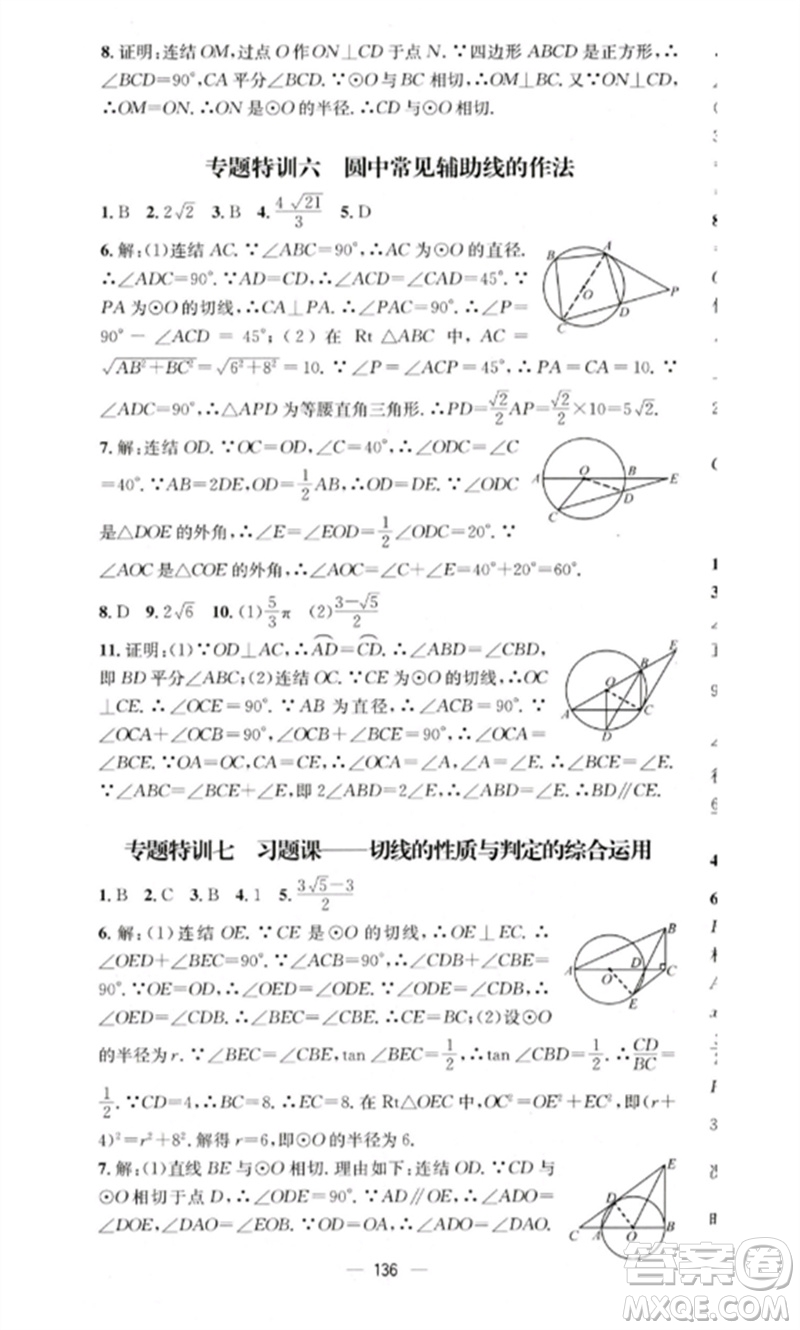 8. 证明:连结 OM,过点 O 作 ON⊥CD 于点 N. ∵四边形 ABCD 是正方形,∴
∠BCD=90°,CA 平分∠BCD. ∵⊙O 与 BC 相切,∴OM⊥BC. 又∵ON⊥CD,
∴OM=ON. ∴ON 是⊙O 的半径. ∴CD 与⊙O 相切.
专题特训六 圆中常见辅助线的作法
1. B 2. 2√2 3. B 4. 4√21/3 5. D
6. 解:(1)连结 AC. ∵∠ABC=90°,∴AC 为⊙O 的直径.
∴∠ADC=90°. ∵AD=CD,∴∠ACD=∠CAD=45°. ∵
PA 为⊙O 的切线,∴CA⊥PA. ∴∠PAC=90°. ∴∠P=
90°－∠ACD=45°;(2)在 Rt△ABC 中,AC=
√(AB²+BC²)=√(6²+8²)=10. ∵∠P=∠ACP=45°,∴PA=CA=10. ∵
∠ADC=90°,∴△APD 为等腰直角三角形. ∴PD=√2/2 AP=√2/2×10=5√2.
7. 解:连结 OD. ∵OC=OD,∠C=40°,∴∠ODC=∠C
=40°. ∵AB=2DE,OD=1/2 AB,∴OD=DE. ∵∠ODC
是△DOE 的外角,∴∠E=∠EOD=1/2∠ODC=20°. ∵
∠AOC 是△COE 的外角,∴∠AOC=∠C+∠E=40°+20°=60°.
8. D 9. 2√6 10. (1)5/3 π (2)(3-√5)/2
11. 证明:(1)∵OD⊥AC,∴AD⌒=CD⌒. ∴∠ABD=∠CBD,
即 BD 平分∠ABC;(2)连结 OC. ∵CE 为⊙O 的切线,∴OC
⊥CE. ∴∠OCE=90°. ∵AB 为直径,∴∠ACB=90°. ∵
∠OCA+∠OCB=90°,∠OCB+∠BCE=90°,∴∠OCA=
∠BCE. ∵OA=OC,∴∠OCA=∠A. ∵∠A=∠E. ∴∠BCE=∠E.
∵∠ABC=∠BCE+∠E,即 2∠ABD=2∠E,∴∠ABD=∠E. ∴BD∥CE.
专题特训七 习题课——切线的性质与判定的综合运用
1. B 2. C 3. B 4. 1 5. (3√5-3)/2
6. 解:(1)连结 OE. ∵CE 是⊙O 的切线,∴OE⊥EC. ∴
∠OED+∠BEC=90°. ∵∠ACB=90°,∴∠CDB+∠CBE=
90°. ∵OE=OD,∴∠OED=∠ODE. ∵∠ODE=∠CDB,∴
∠OED=∠CDB. ∴∠BEC=∠CBE. ∴CE=BC;(2)设⊙O
的半径为 r. ∵∠BEC=∠CBE,tan∠BEC=1/2,∴tan∠CBD=1/2. ∴CD/BC=
1/2. ∵CD=4,∴BC=8. ∴EC=BC=8. 在 Rt△OEC 中,OC²=OE²+EC²,即(r+
4)²=r²+8². 解得 r=6,即⊙O 的半径为 6.
7. 解:(1)直线 BE 与⊙O 相切. 理由如下:连结 OD. ∵CD 与
⊙O 相切于点 D,∴∠ODE=90°. ∵AD∥OE,∴∠ADO=
∠DOE,∠DAO=∠EOB. ∵OD=OA,∴∠ADO=∠DAO.
136
答案卷
MXQE.COM